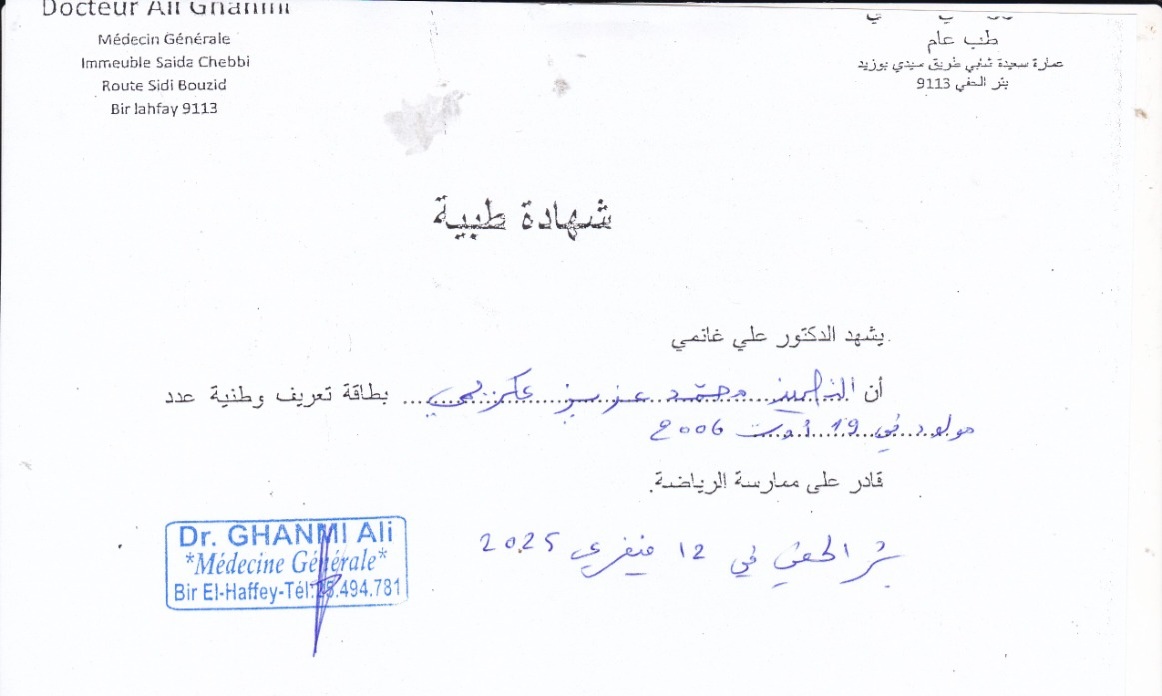 Docteur Ali Ghanmi
Médecin Générale
Immeuble Saida Chebbi
Route Sidi Bouzid
Bir lahfay 9113
طب عام
عمارة سعيدة شابي طريق سيدي بوزيد
بئر الحفي 9113
شهادة طبية
يشهد الدكتور علي غانمي
أن محمد عزيز بطاقة تعريف وطنية عدد
مولود في 19 أوت 2006
قادر على ممارسة الرياضة.
بئر الحفي في 12 فيفري 2025
Dr. GHANMI Ali
*Médecine Générale*
Bir El-Haffey-Tél:25.494.781